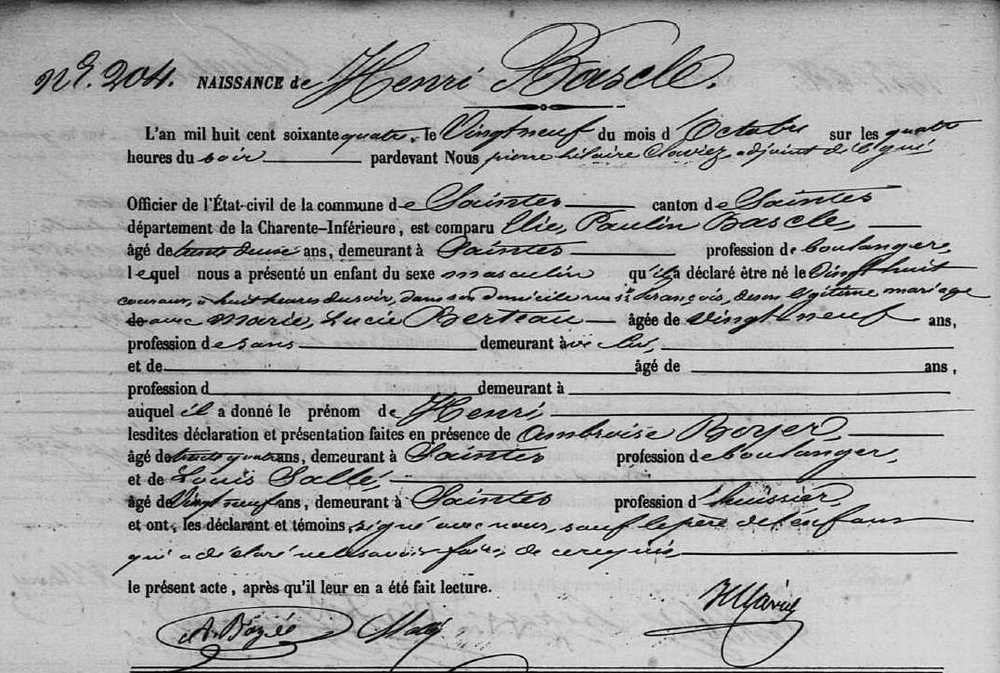 N° 204. NAISSANCE de Henri Bascle.
L'an mil huit cent soixante quatre, le Vingt neuf du mois d'Octobre sur les quatre
heures du soir pardevant Nous pierre hilaire adjoint délégué
Officier de l'État-civil de la commune de Saintes canton de Saintes
département de la Charente-Inférieure, est comparu Elie, Paulin Bascle,
âgé de ans, demeurant à Saintes profession de boulanger,
lequel nous a présenté un enfant du sexe masculin qu'il a déclaré être né le Vingt huit
courant, à huit heures du soir, dans son domicile rue St François, de son légitime mariage
avec Marie, Lucie Berteau âgée de Vingt neuf ans,
profession de sans demeurant avec lui,
et de âgé de ans,
profession d demeurant à
auquel il a donné le prénom de Henri
lesdites déclaration et présentation faites en présence de Ambroise Boyer,
âgé de trente quatre ans, demeurant à Saintes profession de boulanger,
et de Louis Sallé,
âgé de Vingt neuf ans, demeurant à Saintes profession d'huissier,
et ont, les déclarant et témoins, signé avec nous, sauf le père de l'enfant
qui a déclaré ne le savoir faire, de ce requis
le présent acte, après qu'il leur en a été fait lecture.